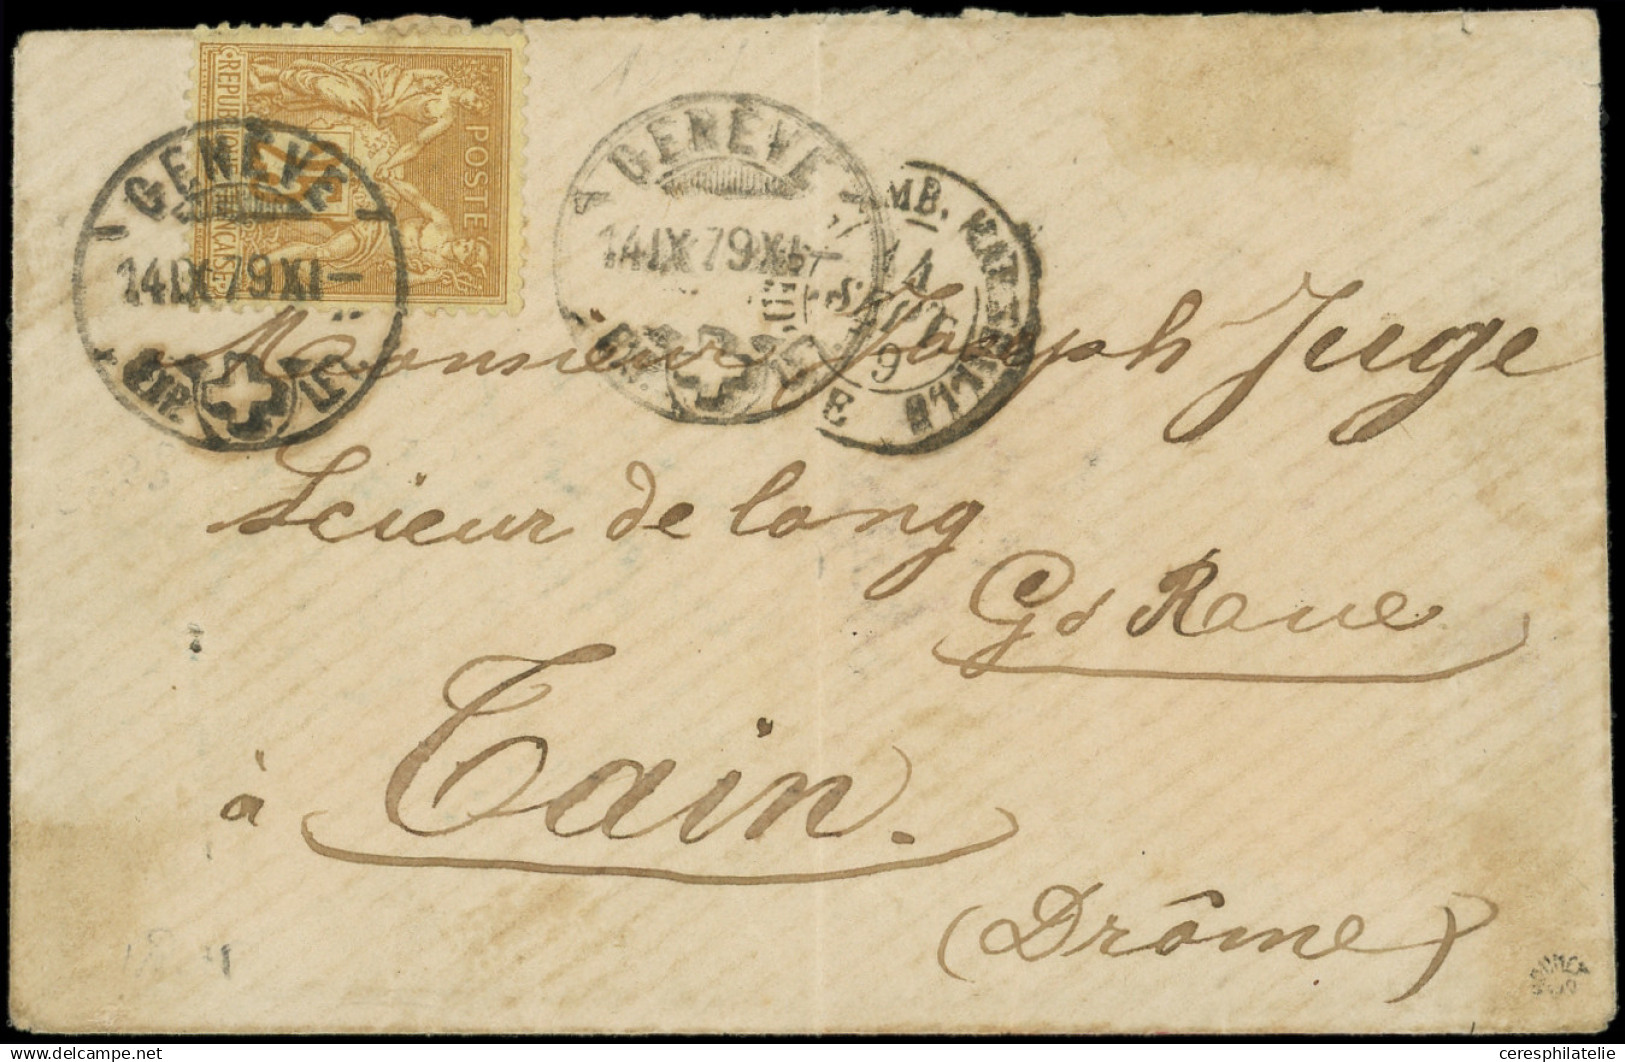 REPUBLIQUE FRANCAISE
POSTE
GENÈVE
14 IX 79 XI
EXP. LET.
GENÈVE
14 IX 79 XI
14
SEPT
Monsieur Joseph Juge
Scieur de long
Gd Rue
à Tain.
(Drôme)
ceresphilatelie.com